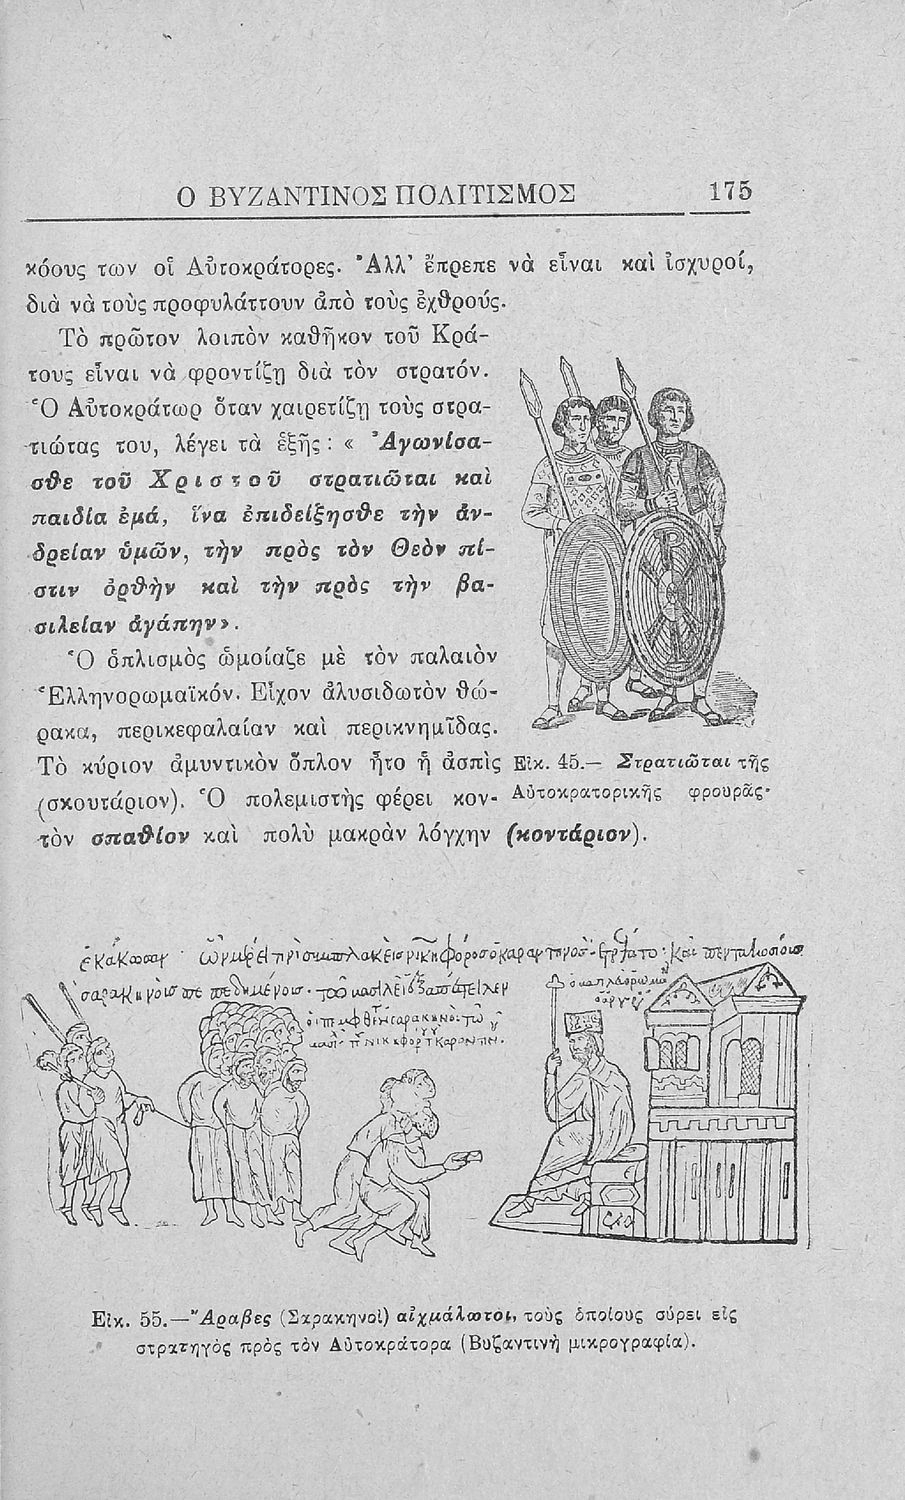 Ο ΒΥΖΑΝΤΙΝΟΣ ΠΟΛΙΤΙΣΜΟΣ 175
κόους των οἱ Αὐτοκράτορες. Ἀλλ’ ἔπρεπε νὰ εἶναι καὶ ἰσχυροί,
διὰ νὰ τοὺς προφυλάττουν ἀπὸ τοὺς ἐχθρούς.
Τὸ πρῶτον λοιπὸν καθῆκον τοῦ Κρά-
τους εἶναι νὰ φροντίζῃ διὰ τὸν στρατόν.
Ὁ Αὐτοκράτωρ ὅταν χαιρετίζῃ τοὺς στρα-
τιώτας του, λέγει τὰ ἑξῆς : « Ἀγωνίσα-
σθε τοῦ Χριστοῦ στρατιῶται καὶ
παιδία ἐμά, ἵνα ἐπιδείξησθε τὴν ἀν-
δρείαν ὑμῶν, τὴν πρὸς τὸν Θεὸν πί-
στιν ὀρθὴν καὶ τὴν πρὸς τὴν βα-
σιλείαν ἀγάπην».
Ὁ ὁπλισμὸς ὡμοίαζε μὲ τὸν παλαιὸν
Ἑλληνορωμαϊκόν. Εἶχον ἁλυσιδωτὸν θώ-
ρακα, περικεφαλαίαν καὶ περικνημῖδας.
Τὸ κύριον ἀμυντικὸν ὅπλον ἦτο ἡ ἀσπὶς
(σκουτάριον). Ὁ πολεμιστὴς φέρει κον-
τὸν σπαθίον καὶ πολὺ μακρὰν λόγχην (κοντάριον).
Εἰκ. 45.— Στρατιῶται τῆς
Αὐτοκρατορικῆς φρουρᾶς.
Εἰκ. 55.—Ἄραβες (Σαρακηνοὶ) αἰχμάλωτοι, τοὺς ὁποίους σύρει εἷς
στρατηγὸς πρὸς τὸν Αὐτοκράτορα (Βυζαντινὴ μικρογραφία).